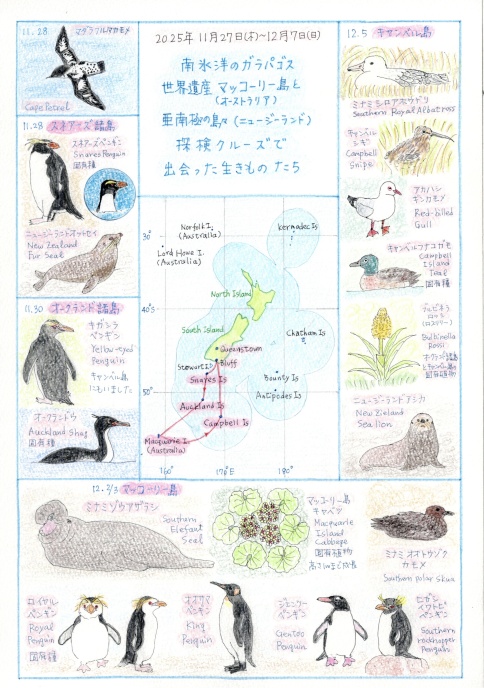 2025年 11月27日(木)~12月7日(日)
南氷洋のガラパゴス
世界遺産 マッコーリー島と
(オーストラリア)
亜南極の島々(ニュージーランド)
探検クルーズで
出会った生きものたち
11.28 マダラフルマカモメ
Cape Petrel
11.28
スネアーズ諸島
スネアーズペンギン
Snares Penguin
固有種
ニュージーランドオットセイ
New Zealand
Fur Seal
11.30
オークランド諸島
キガシラ
ペンギン
Yellow-eyed
Penguin
キャンベル島
にもいました
オークランドウ
Auckland Shag
固有種
Norfolk I.
(Australia)
Kermadec Is
30°
Lord Howe I.
(Australia)
North Island
40°S
South Island
Queenstown
Chatham Is
Stewart I
Bluff
Snares Is
50°
Bounty Is
Auckland Is
Antipodes Is
Campbell Is
Macquarie I.
(Australia)
160°
170°E
180°
12.5 キャンベル島
ミナミシロアホウドリ
Southern Royal Albatross
キャンベル
シギ
Campbell
Snipe
アカハシ
ギンカモメ
Red-billed
Gull
キャンベルコガモ
Campbell
Island
Teal
固有種
ブルビネラ
ロッシ
(ロスリリー)
Bulbinella
Rossi
オークランド諸島
とキャンベル島
固有植物
ニュージーランドアシカ
New Zealand
Sea lion
12.2/3 マッコーリー島
ミナミゾウアザラシ
Southern
Elefant
Seal
マッコーリー島
キャベツ
Macquarie
Island
Cabbage
固有植物
高さ1mまで成長
ミナミオオトウゾク
カモメ
Southern polar skua
ロイヤル
ペンギン
Royal
Penguin
固有種
オオサマ
ペンギン
King
Penguin
ジェンツー
ペンギン
Gentoo
Penguin
ヒガシ
イワトビ
ペンギン
Southern
rockhopper
Penguin